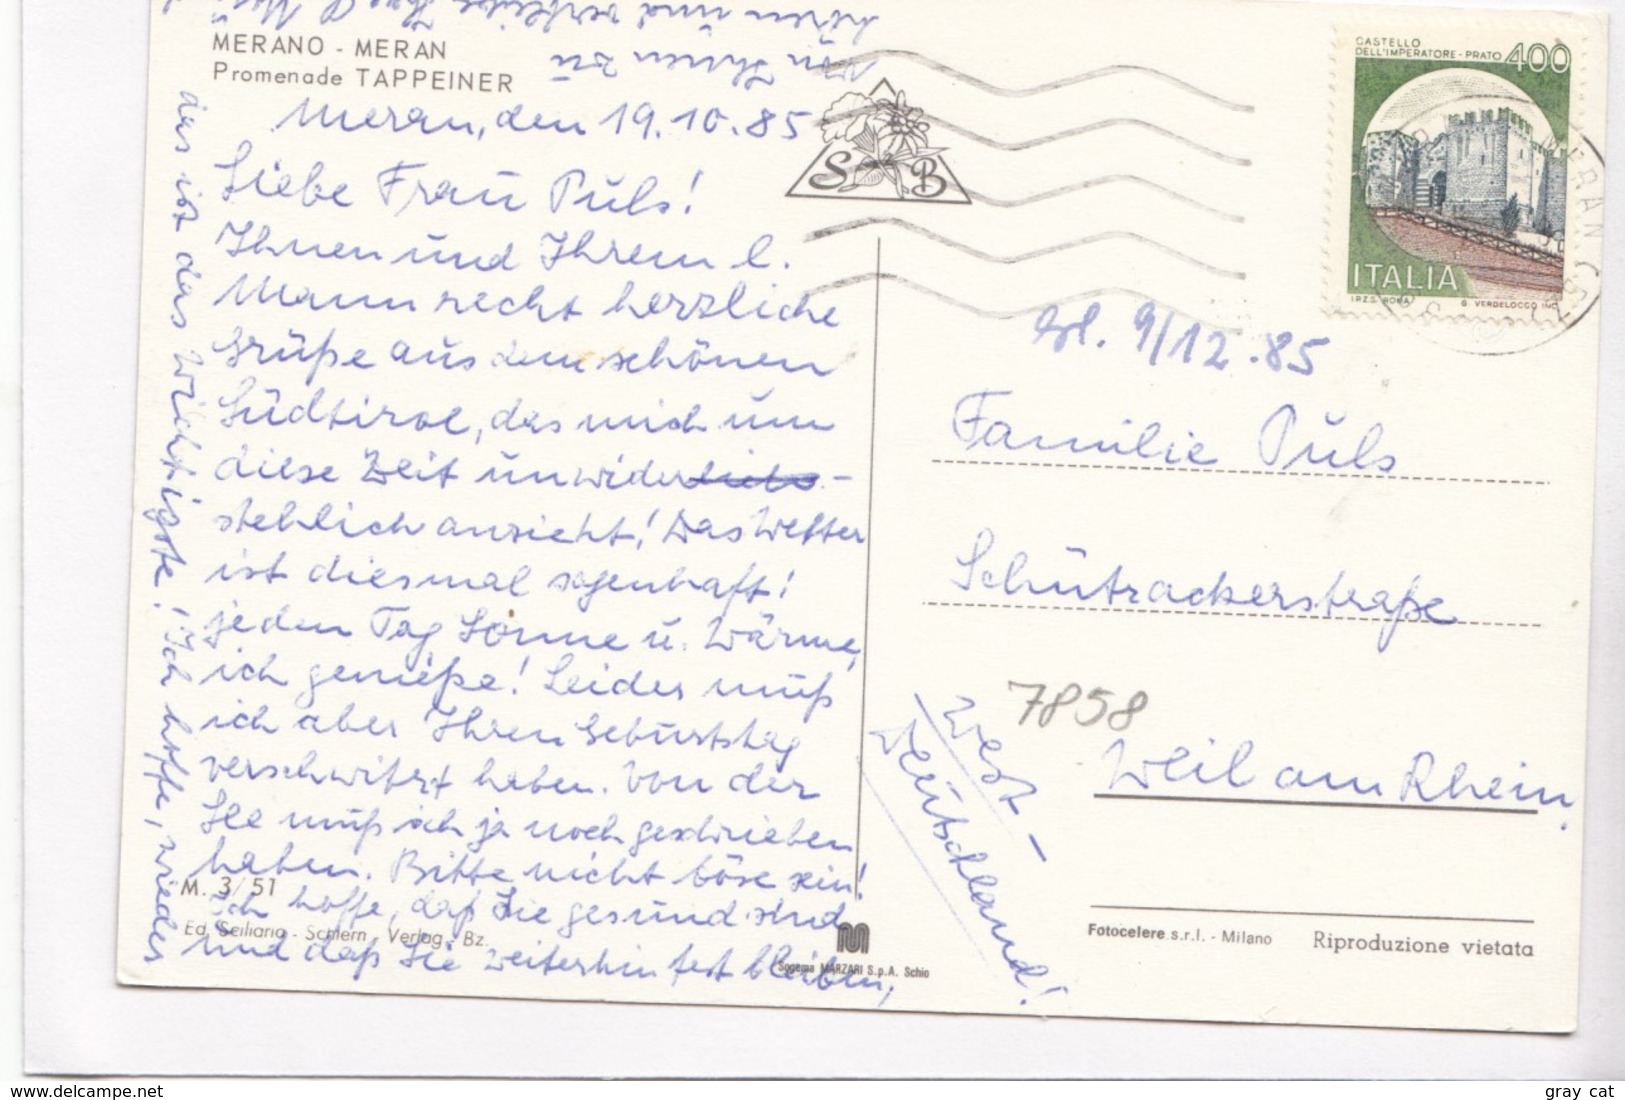 MERANO - MERAN
Promenade TAPPEINER
Meran, den 19.10.85
Liebe Frau Puls!
Ihnen und Ihrem l.
Mann recht herzliche
Grüße aus dem schönen
Südtirol, das mich um
diese Zeit unwider-
stehlich anzieht! Das Wetter
ist diesmal sagenhaft!
jeden Tag Sonne u. Wärme,
ich genieße! Leider muß
ich aber Ihren Geburtstag
verschwitzt haben. Von der
See muß ich ja noch geschrieben
haben. Bitte nicht böse sein!
Ich hoffe, daß Sie gesund sind
und daß Sie weiterhin fest bleiben,
das ist das Wichtigste! Ich hoffe, wieder
von Ihnen zu
hören und verbleibe Ihre
M. 3/51
Ed. Sciliaria - Schlern Verlag - Bz.
SB
CASTELLO
DELL'IMPERATORE - PRATO 400
ITALIA
I.P.Z.S. ROMA G. VERDELOCCO INC.
MERAN
9/12.85
Familie Puls
Schütrackerstraße
7858
Weil am Rhein
West-
Deutschland!
Sogema MARZARI S.p.A. Schio
Fotocelere s.r.l. - Milano
Riproduzione vietata
delcampe.net
gray cat